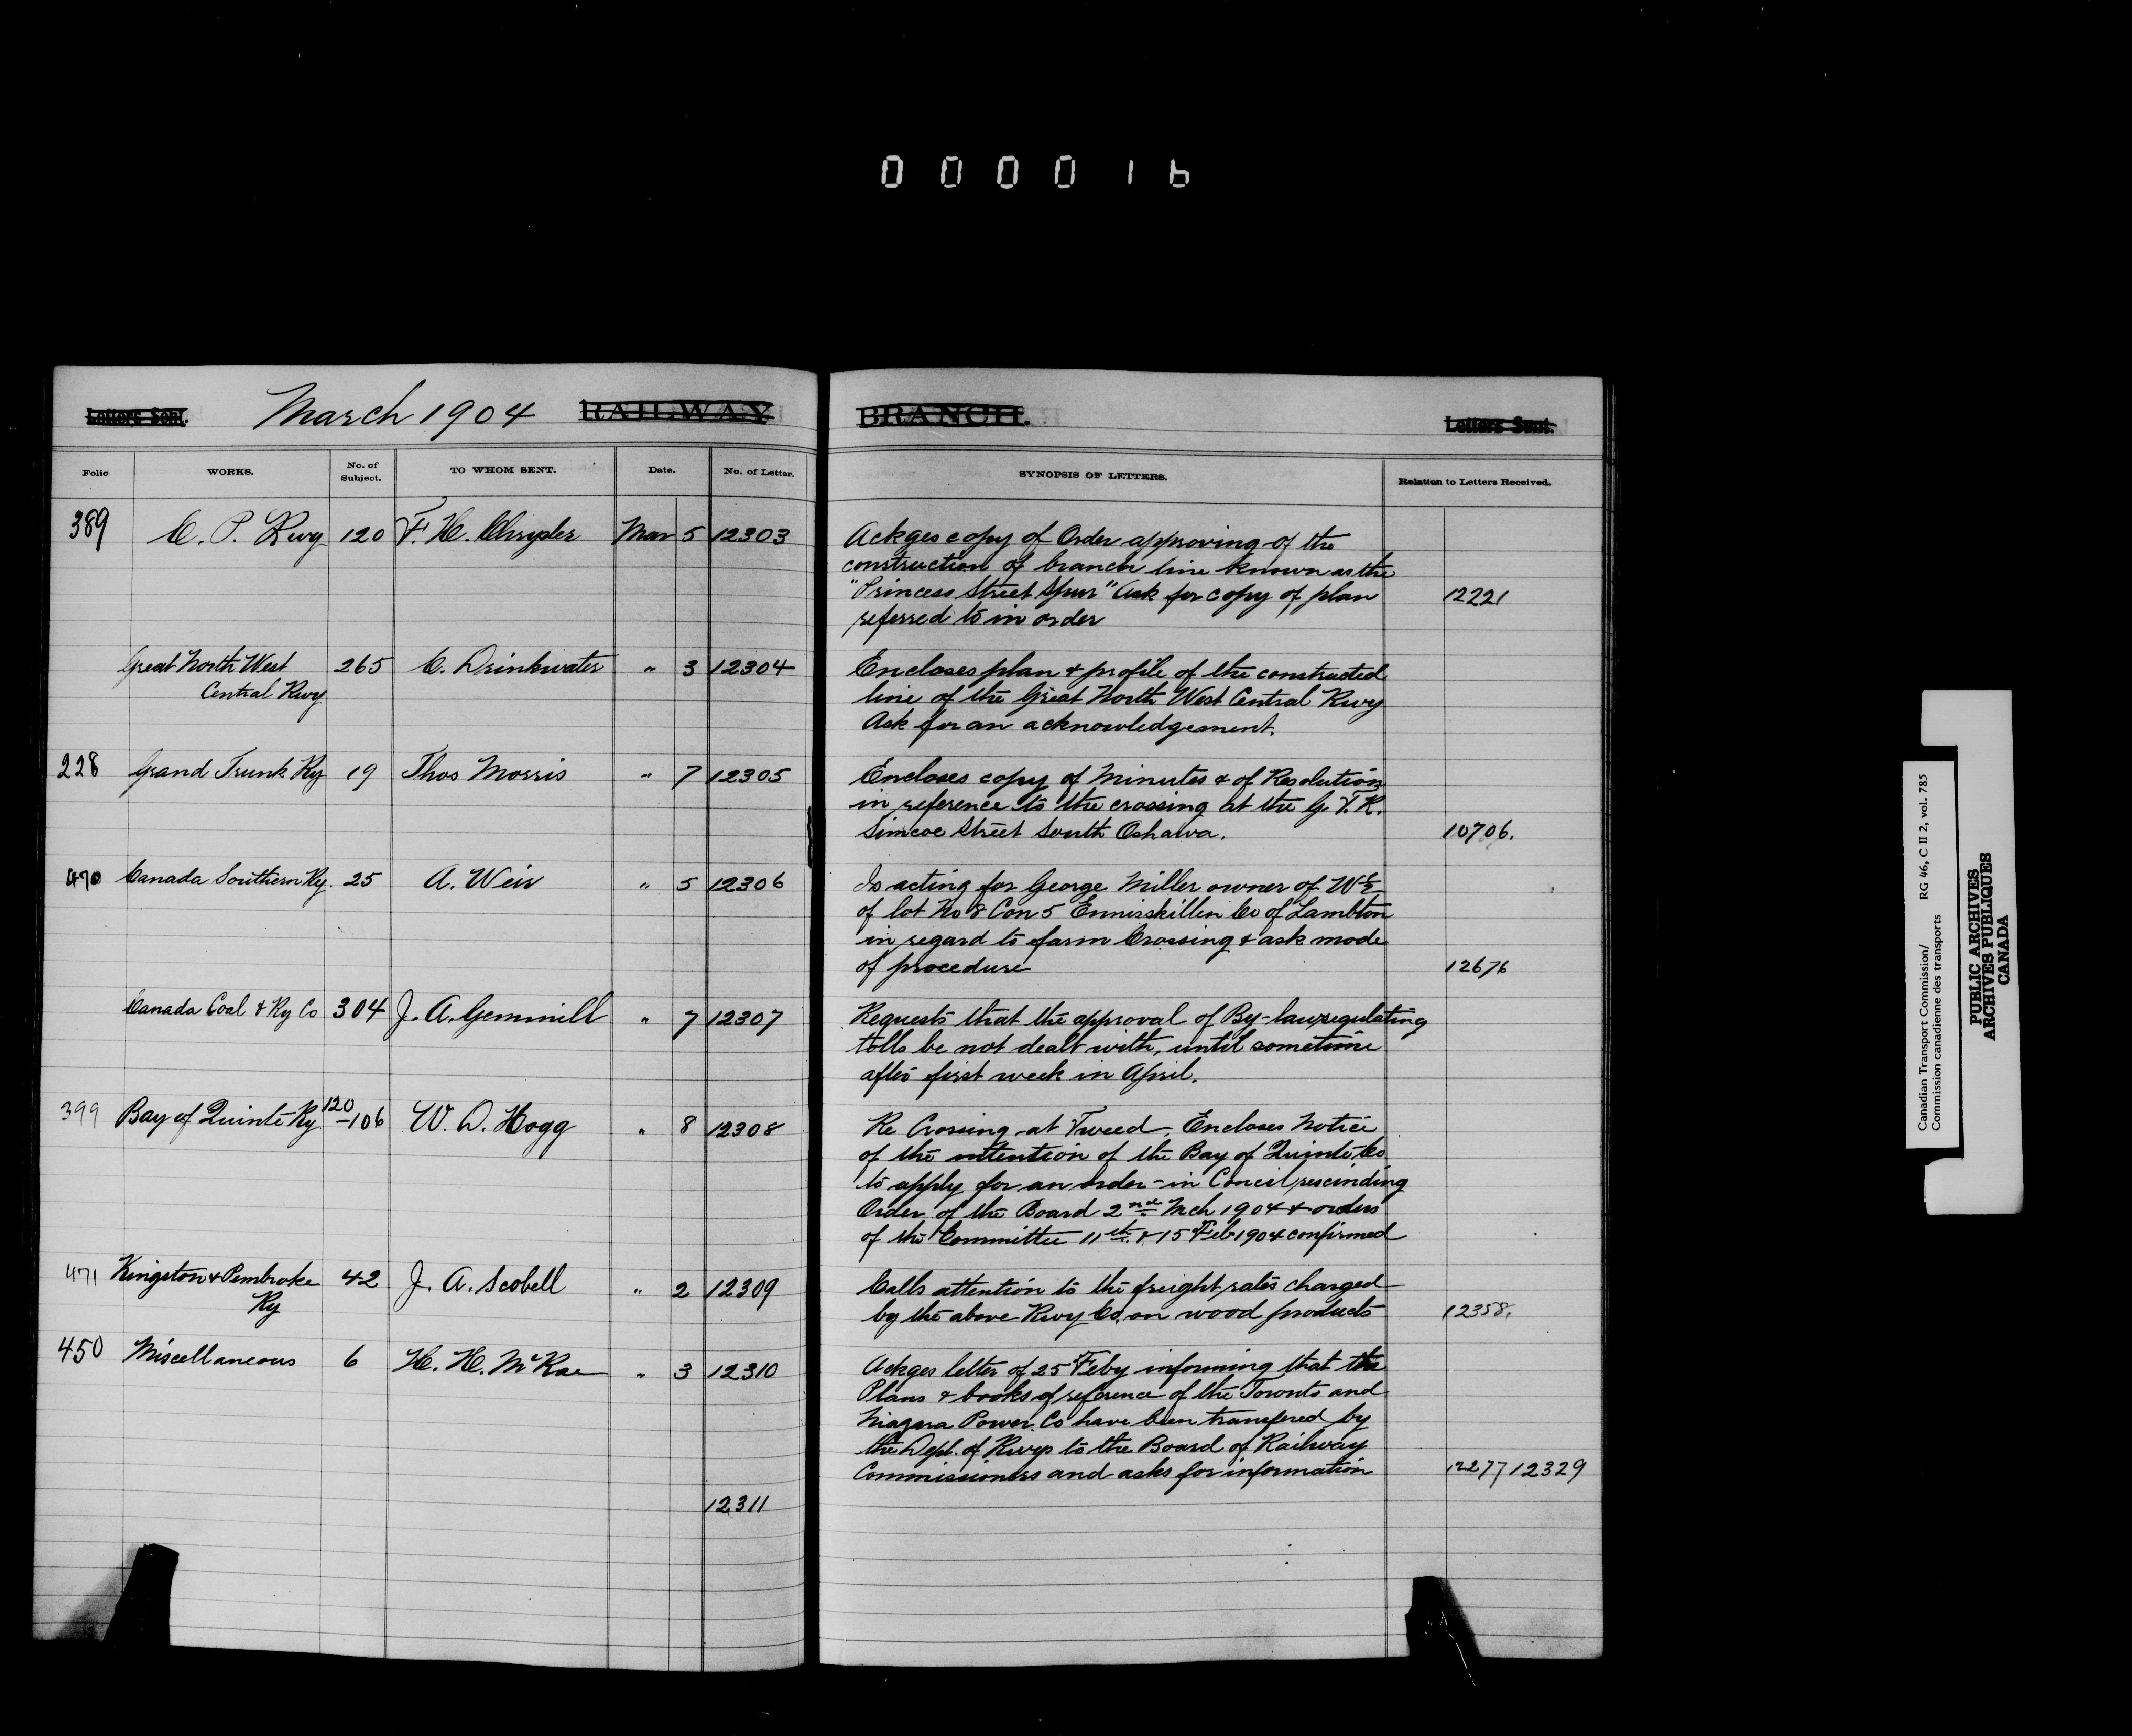 000016
Letters Sent. March 1904 RAILWAY BRANCH. Letters Sent.
Folio WORKS. No. of Subject. TO WHOM SENT. Date. No. of Letter. SYNOPSIS OF LETTERS. Relation to Letters Received.
389 C. P. Rwy 120 F. H. Chrysler Mar 5 12303 Ackges copy of Order approving of the
construction of branch line known as the
"Princess Street Spur" Ask for copy of plan 12221
referred to in order
Great North West 265 C. Drinkwater " 3 12304 Encloses plan & profile of the constructed
Central Rwy line of the Great North West Central Rwy
Ask for an acknowledgement.
228 Grand Trunk Ry 19 Thos Morris " 7 12305 Encloses copy of Minutes & of Resolution
in reference to the crossing at the G. T. R.
Simcoe Street South Oshawa. 10706.
470 Canada Southern Ry. 25 A. Weir " 5 12306 Is acting for George Miller owner of W½
of lot No 8 Con 5 Enniskillen Co of Lambton
in regard to farm Crossing & ask mode
of procedure 12676
Canada Coal & Ry Co 304 J. A. Gemmill " 7 12307 Requests that the approval of By-law regulating
tolls be not dealt with, until sometime
after first week in April.
399 Bay of Quinte Ry. 120-106 W. D. Hogg " 8 12308 Re Crossing at Tweed. Encloses Notice
of the intention of the Bay of Quinte Co
to apply for an order-in Concil rescinding
Order of the Board 2nd Mch 1904 & orders
of the Committee 11th & 15 Feb 1904 confirmed
471 Kingston & Pembroke 42 J. A. Scobell " 2 12309 Calls attention to the freight rates charged
Ry by the above Rwy Co. on wood products 12358.
450 Miscellaneous 6 H. H. McRae " 3 12310 Ackges letter of 25 Feby informing that the
Plans & books of reference of the Toronto and
Niagara Power Co have been transfered by
the Dept. of Rwys to the Board of Railway
Commissioners and asks for information 12277 12329
12311
Canadian Transport Commission/ RG 46, C II 2, vol. 785
Commission canadienne des transports
PUBLIC ARCHIVES
ARCHIVES PUBLIQUES
CANADA